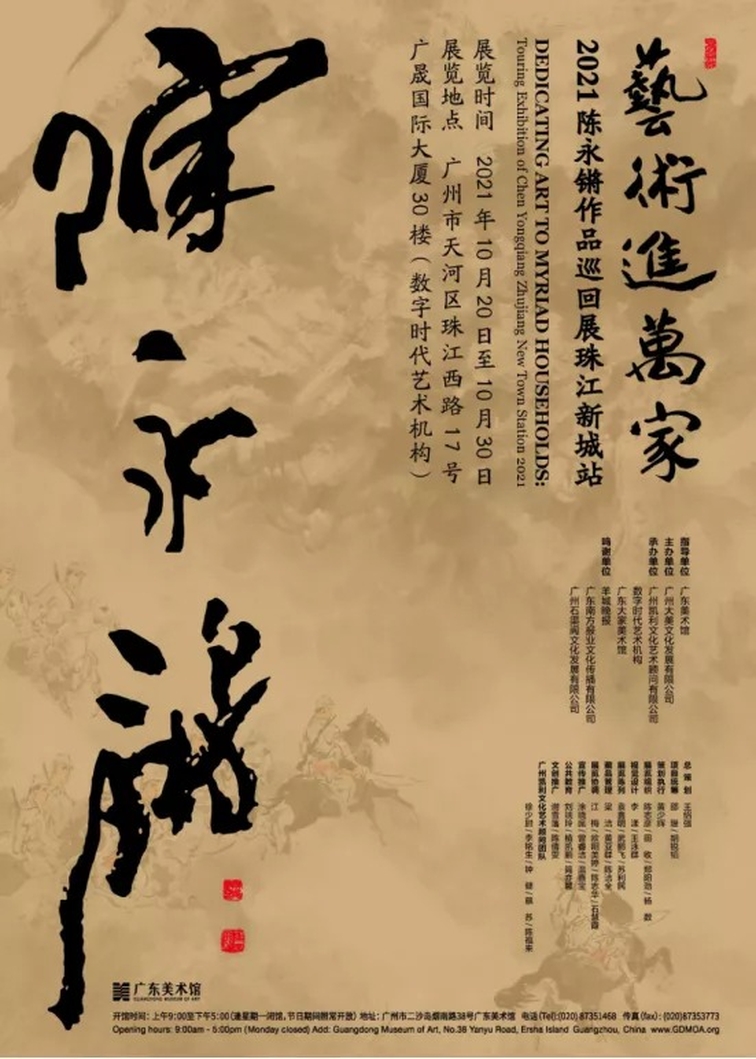 藝術進萬家
2021 陈永锵作品巡回展珠江新城站
DEDICATING ART TO MYRIAD HOUSEHOLDS:
Touring Exhibition of Chen Yongqiang Zhujiang New Town Station 2021
展览时间 2021年10月20日至10月30日
展览地点 广州市天河区珠江西路17号
广晟国际大厦30楼（数字时代艺术机构）
陳永鏘
指导单位 广东美术馆
主办单位 广州大美文化发展有限公司
承办单位 广州凯利文化艺术顾问有限公司
数字时代艺术机构
广东大家美术馆
鸣谢单位 羊城晚报
广东南方报业文化传播有限公司
广州石渠阁文化发展有限公司
总策划 王绍强
项目统筹
策划执行
展览组织
视觉设计
展览陈列
藏品管理
展览协调
宣传推广
公共教育
文创推广
广州凯利文化艺术顾问团队
广东美术馆
GUANGDONG MUSEUM OF ART
开馆时间：上午9:00至下午5:00（逢星期一闭馆，节日期间照常开放） 地址：广州市二沙岛烟雨路38号广东美术馆 电话(Tel):(020)87351468 传真(fax):(020)87353773
Opening hours: 9:00am - 5:00pm (Monday closed) Add: Guangdong Museum of Art, No.38 Yanyu Road, Ersha Island Guangzhou, China www.GDMOA.org